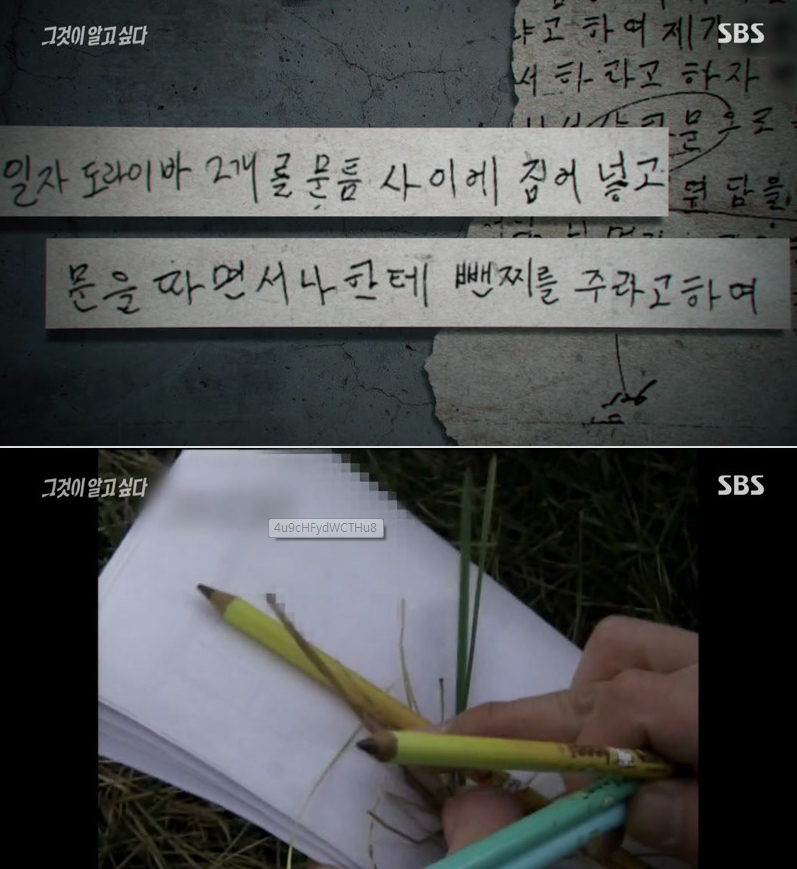 그것이 알고싶다
SBS
냐고 하여 제가
서 하라고 하자
문으로
일자 도라이바 2개를 문틈 사이에 집어 넣고
담을
문을 따면서 나한테 뺀찌를 주라고하여
그것이 알고싶다
SBS
4u9cHFydWCTHu8